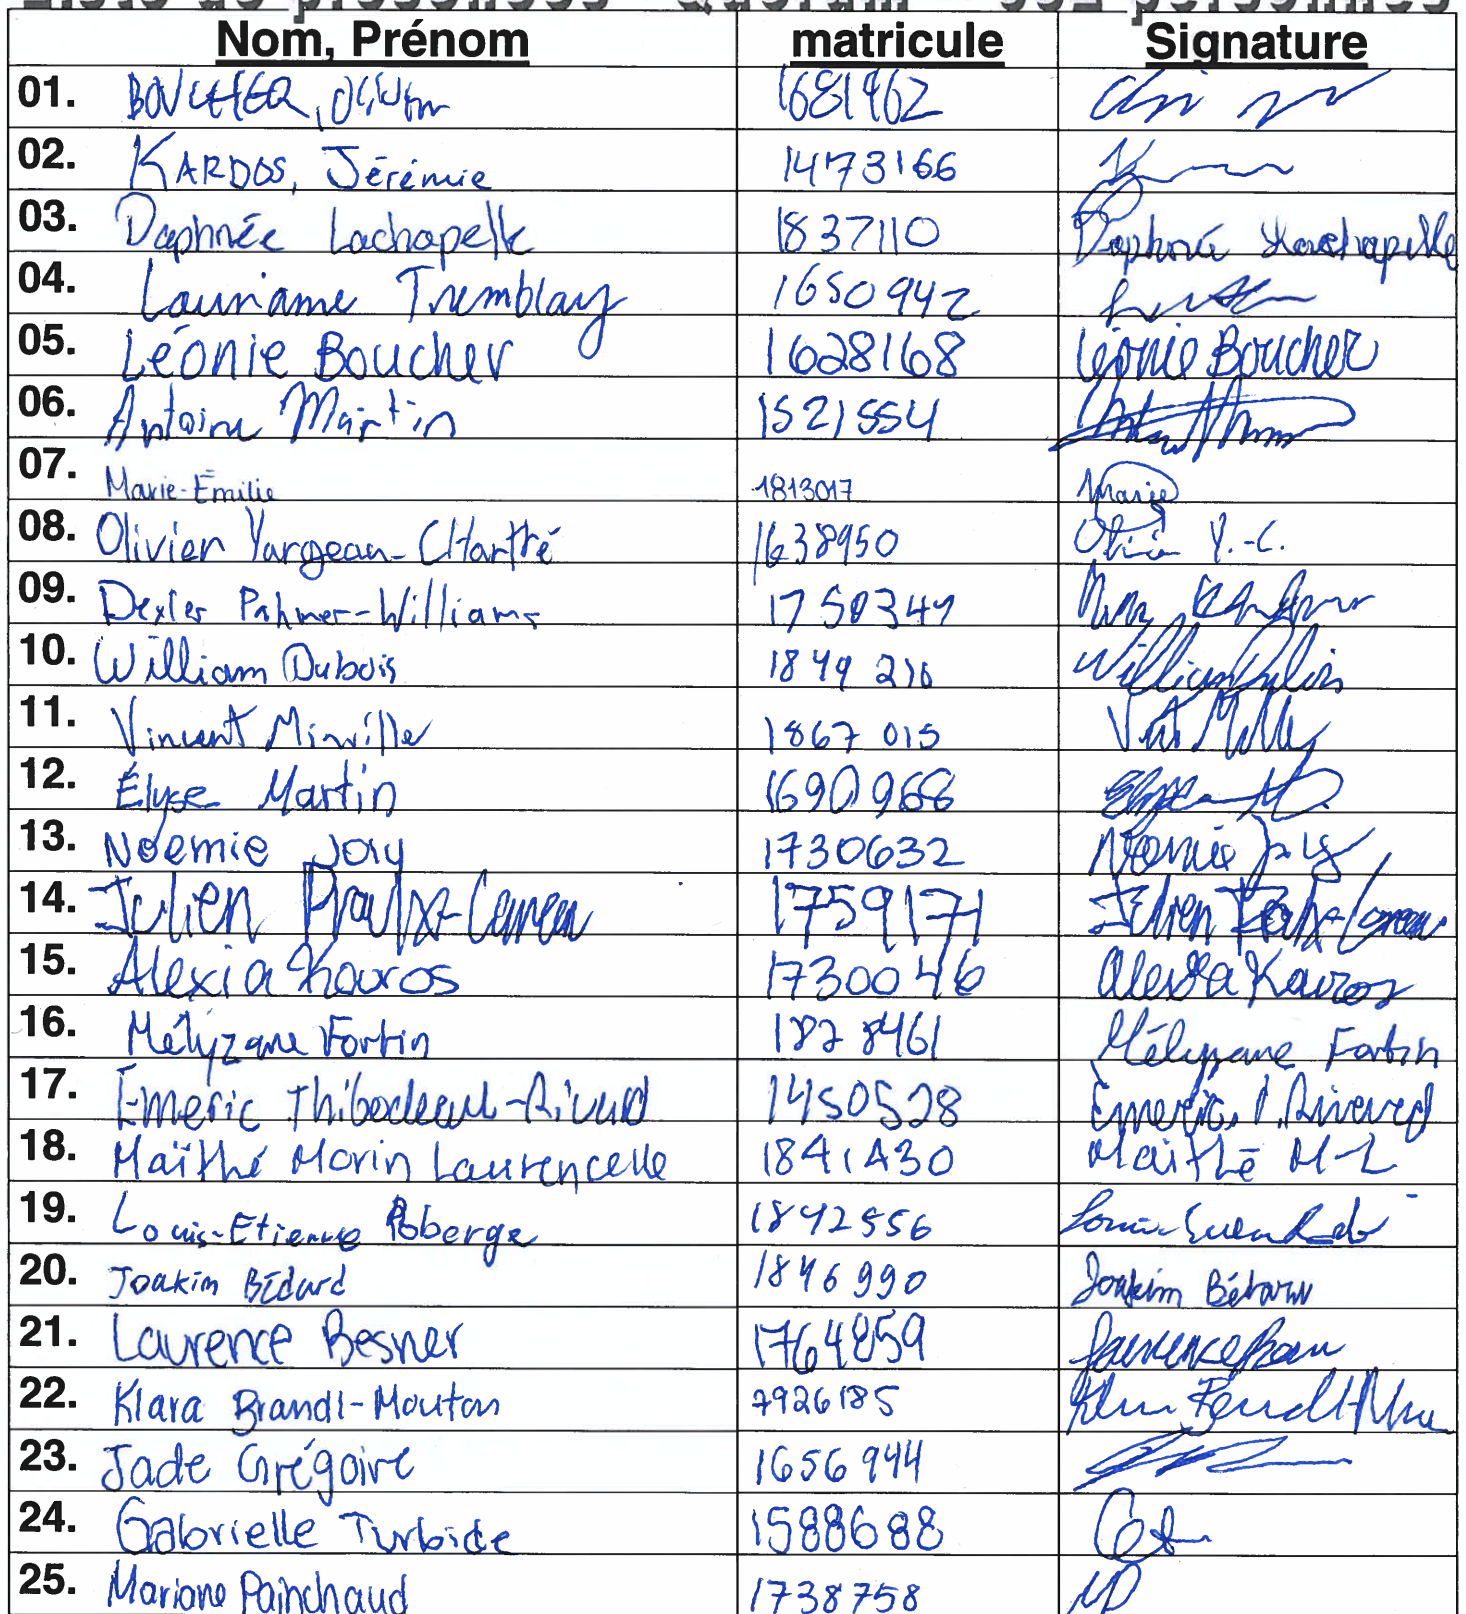 Liste de présences - Quorum - 552 personnes
Nom, Prénom matricule Signature
01. BOUCHER, Olivier 1681962
02. KARDOS, Jérémie 1473166
03. Daphnée Lachapelle 1837110 Daphné Lachapelle
04. Lauriame Tremblay 1650942
05. Léonie Boucher 1628168 Léonie Boucher
06. Antoine Martin 1521554
07. Marie-Émilie 1813017 Marie
08. Olivier Yargeau-CHartré 1638950 Olivier Y.-C.
09. Dexter Pahmer-Williams 1750349
10. William Dubois 1849 210 William Dubois
11. Vincent Minville 1867 015
12. Élyse Martin 1690968
13. Noémie Joly 1730632 Noémie Joly
14. Julien Proulx-Comeau 1759171 Julien Proulx-Comeau
15. Alexia Kouros 1730046 Alexia Kouros
16. Mélyzane Fortin 1828461 Mélyzane Fortin
17. Émeric Thibodeau-Rivard 1450528 Émeric T. Rivard
18. Maïthé Morin Laurencelle 1841430 Maïthé M-L
19. Louis-Etienne Roberge 1842556
20. Joakim Bédard 1846990 Joakim Bédard
21. Laurence Besner 1764859
22. Klara Brandl-Mouton 7926185
23. Jade Grégoire 1656944
24. Gabrielle Turbide 1588688
25. Mariane Painchaud 1738758 MP